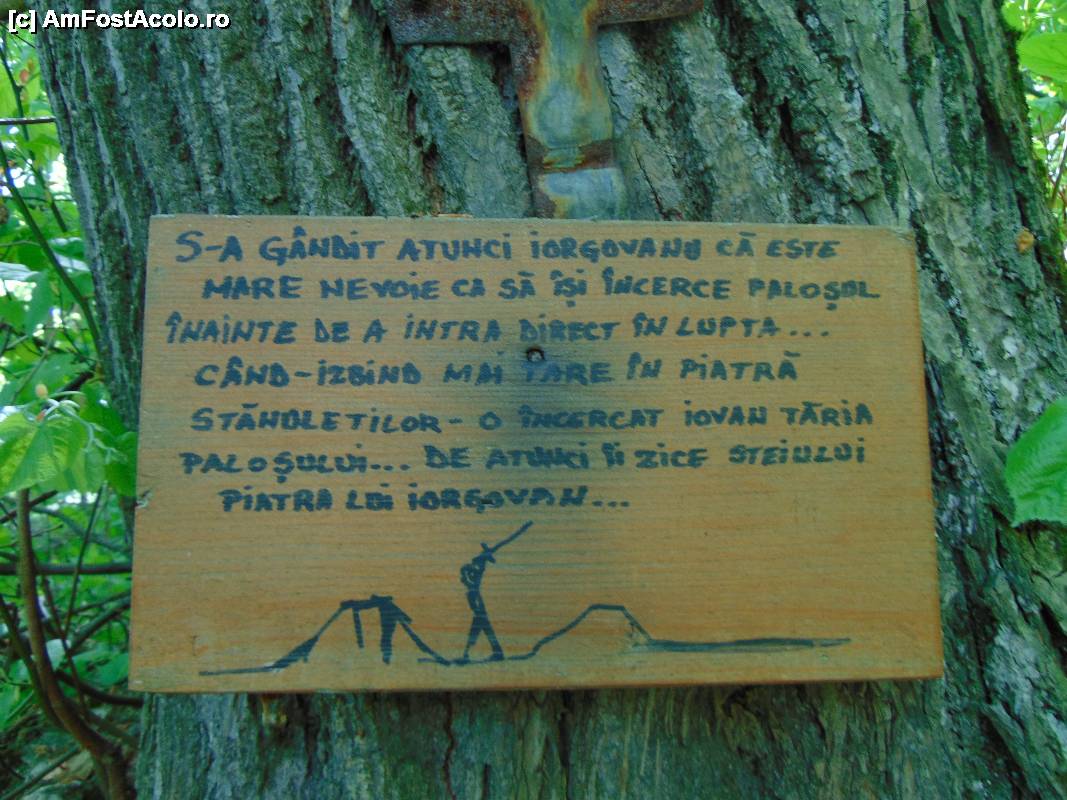 [c] AmFostAcolo.ro
S-A GÂNDIT ATUNCI IORGOVANU CĂ ESTE
MARE NEVOIE CA SĂ ÎȘI ÎNCERCE PALOȘUL
ÎNAINTE DE A INTRA DIRECT ÎN LUPTA...
CÂND-IZBIND MAI TARE ÎN PIATRĂ
STĂNULETILOR-O ÎNCERCAT IOVAN TĂRIA
PALOȘULUI... DE ATUNCI ÎI ZICE STEIULUI
PIATRA LUI IORGOVAN...